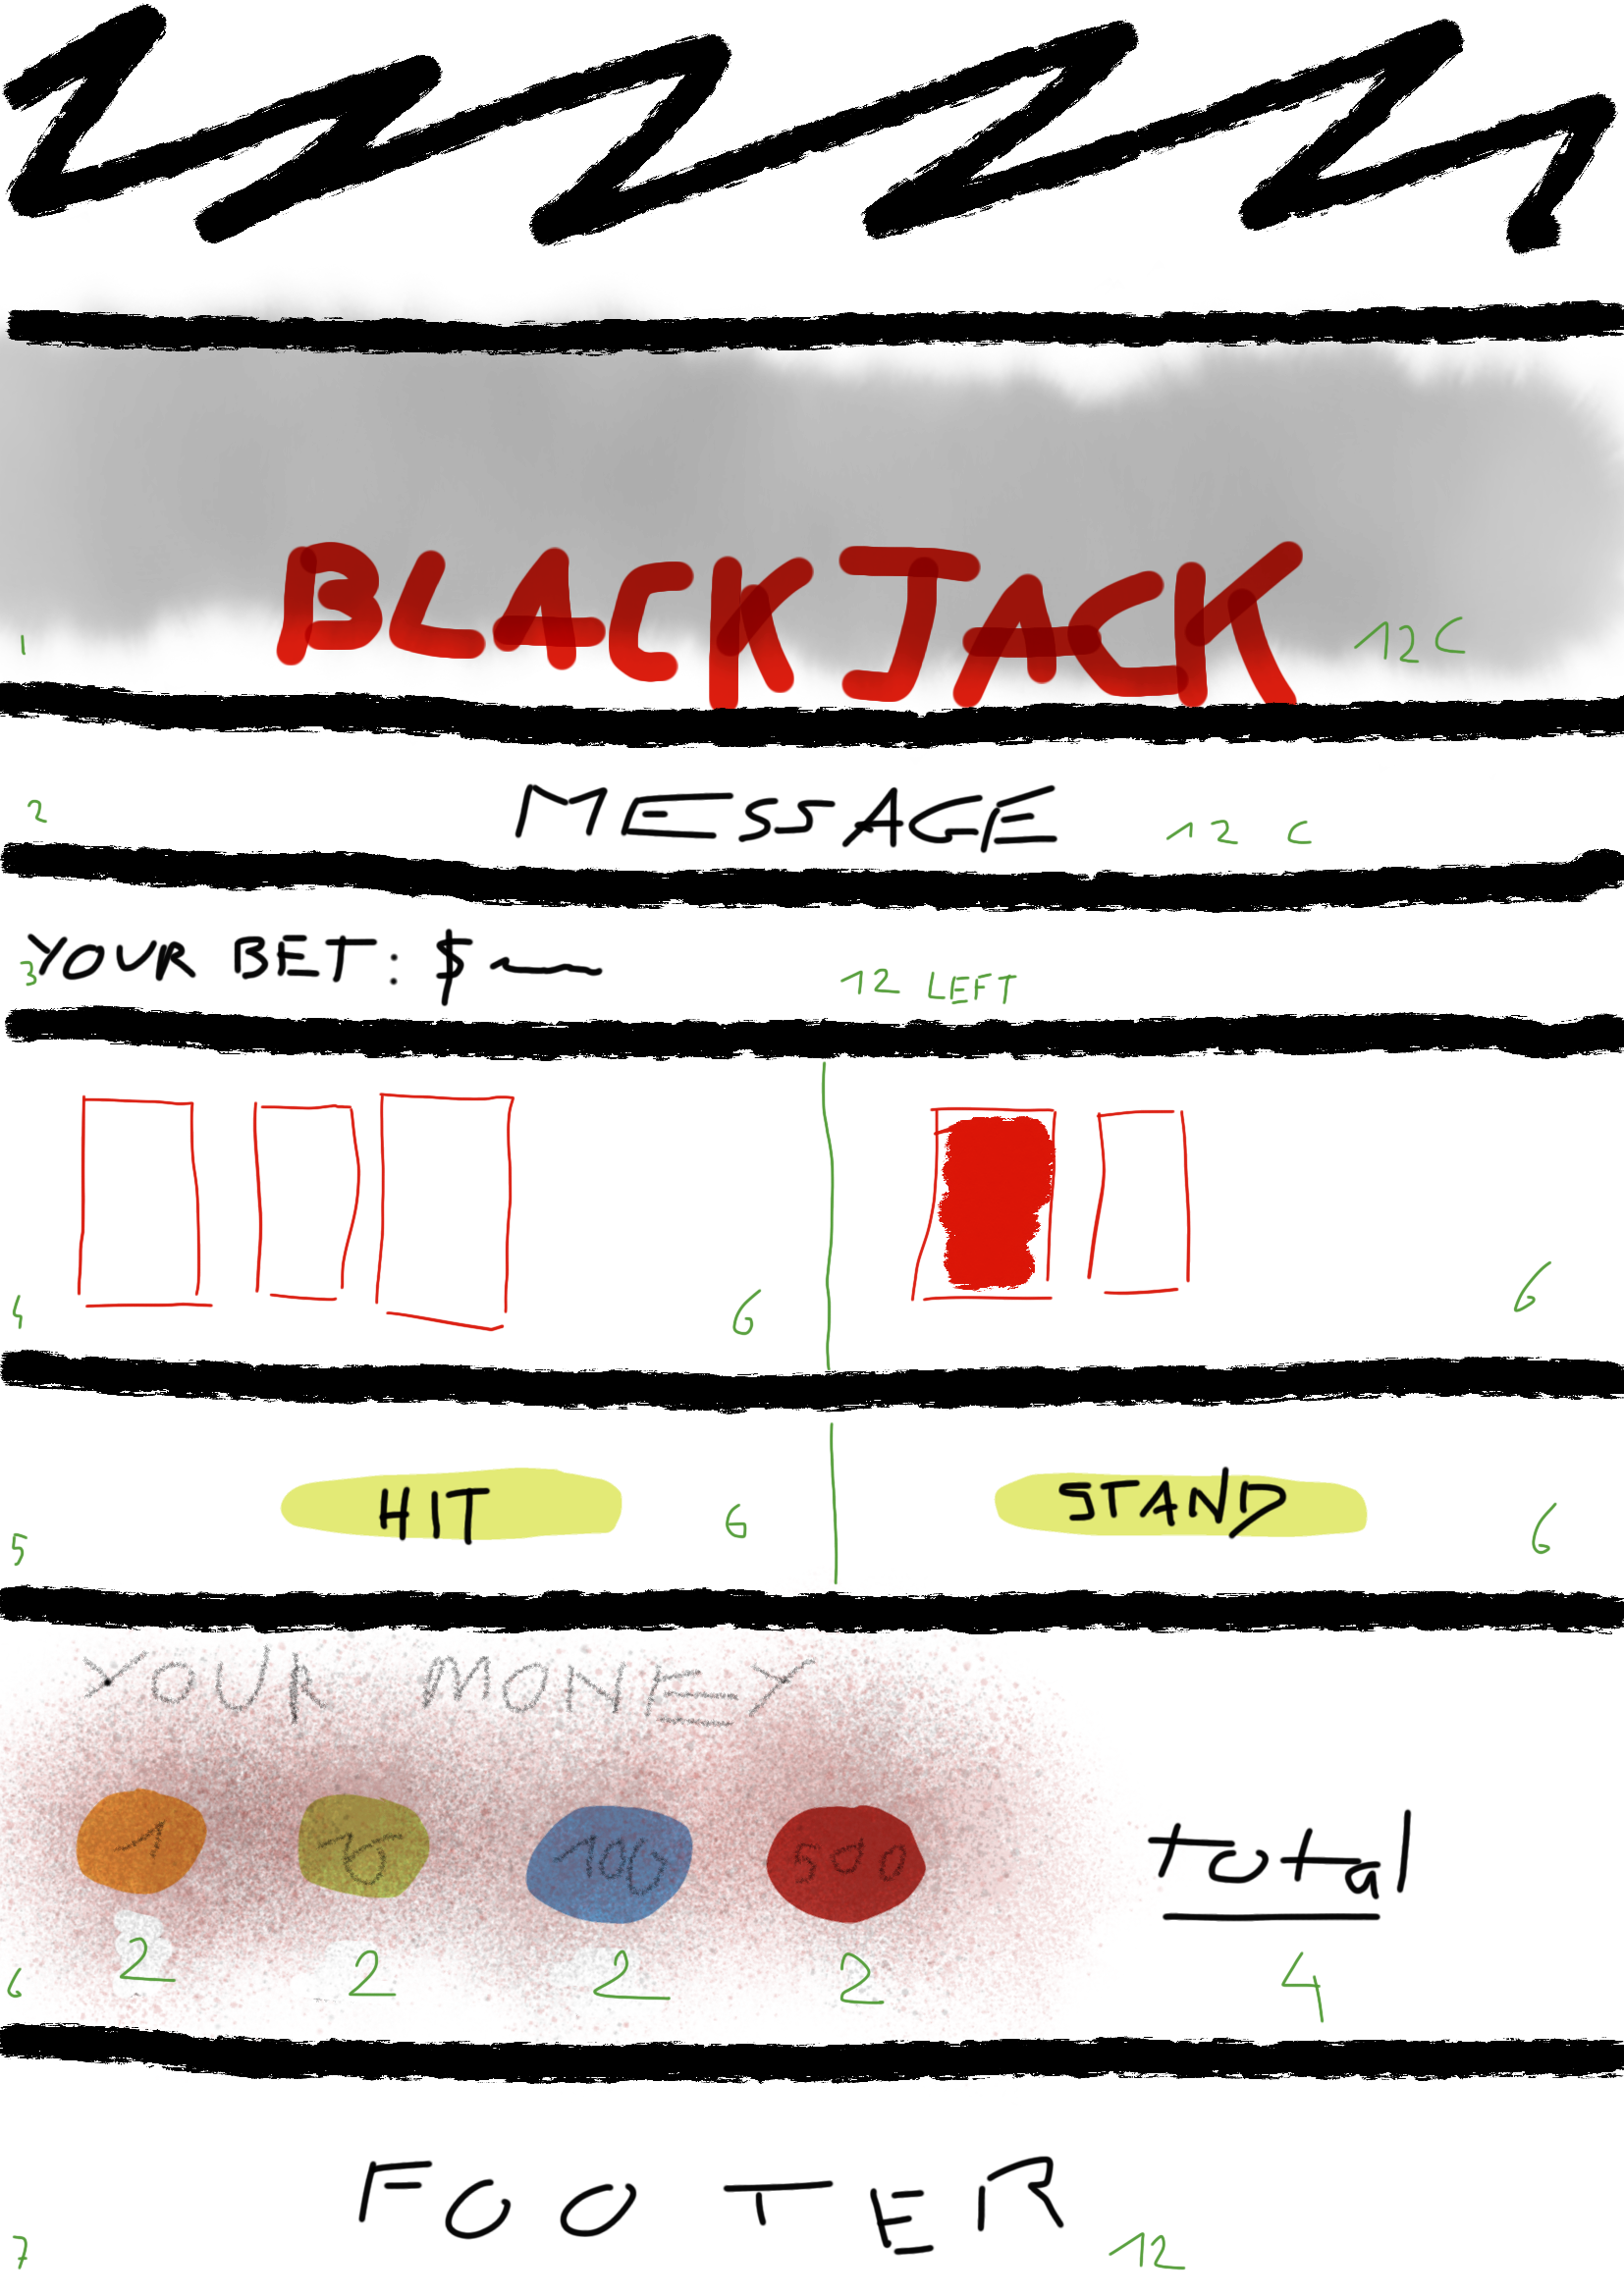 BLACKJACK
1 12 C
MESSAGE
2 12 C
YOUR BET: $
3 12 LEFT
4 6 6
HIT STAND
5 6 6
YOUR MONEY
1 100 500 total
6 2 2 2 2 4
FOOTER
7 12